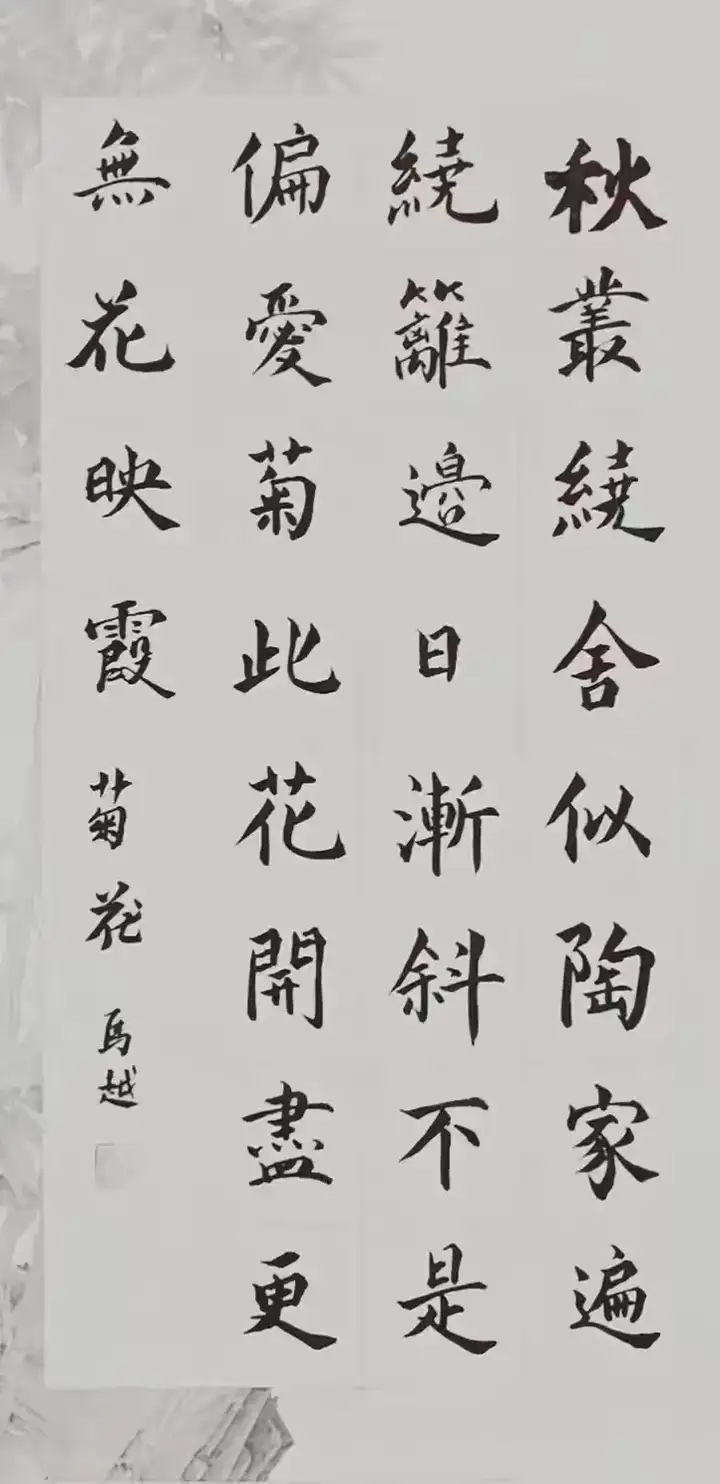 秋叢繞舍似陶家遍
繞籬邊日漸斜不是
偏愛菊此花開盡更
無花映霞菊花馬越